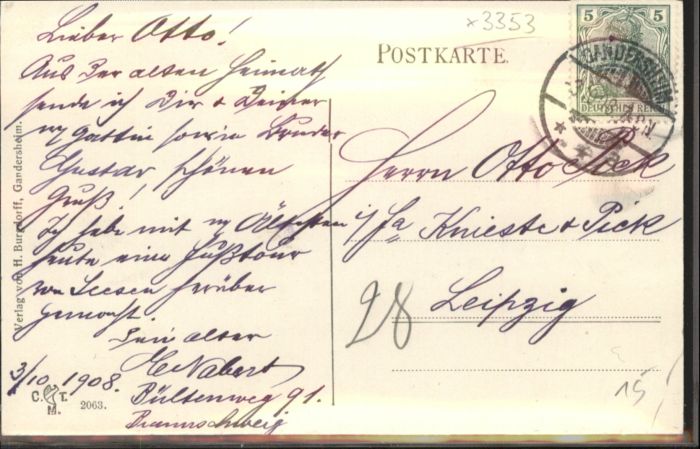 Lieber Otto!
Aus der alten Heimath
sende ich Dir & Deiner
Gattin sowie Bruder
Gustav schönen
Gruß!
Ich habe mit m/ Ältesten
heute eine Fußtour
von Seesen herüber
gemacht.
Dein alter
H Nabert
3/10 1908.
Bültenweg 91.
Braunschweig
C. T.
M.
2063.
Verlag von H. Burgdorff, Gandersheim.
×3353
POSTKARTE.
5 5
DEUTSCHES REICH
GANDERSHEIM
Herrn Otto Pick
i/ Fa Knieste & Pick
Leipzig
28
15